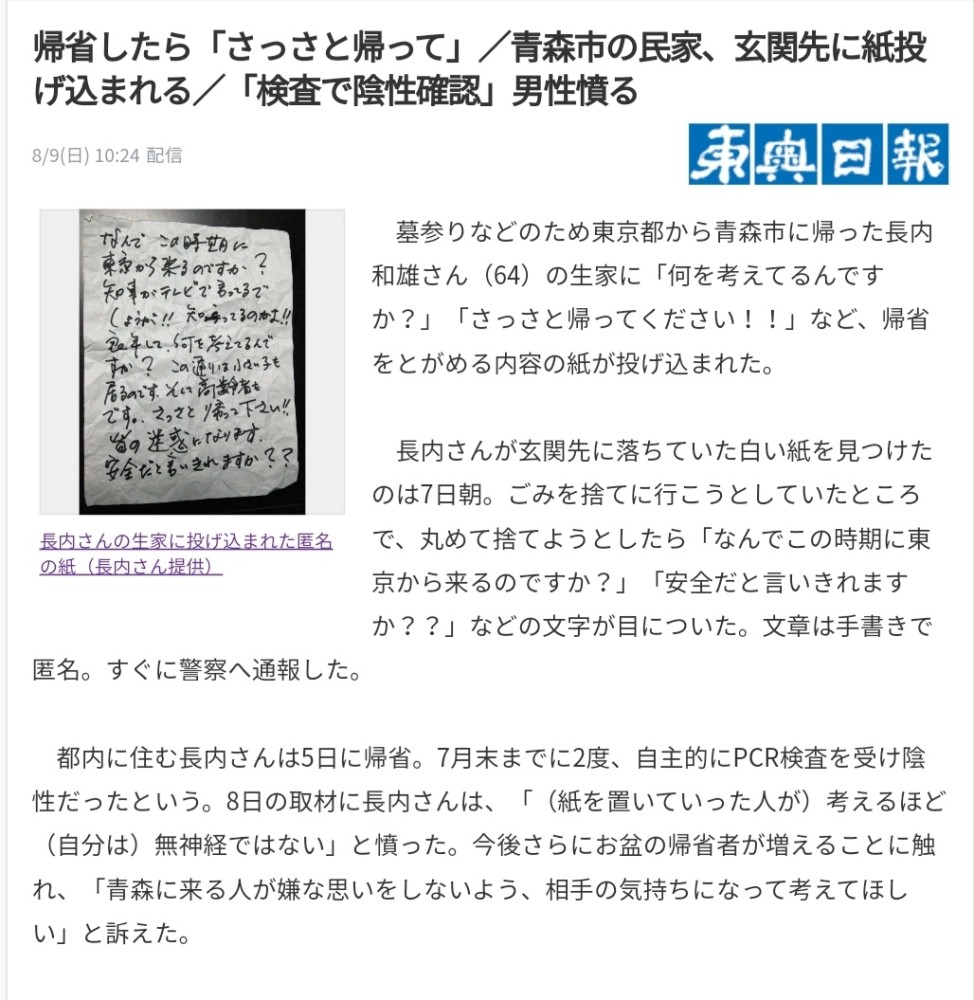 帰省したら「さっさと帰って」／青森市の民家、玄関先に紙投
げ込まれる／「検査で陰性確認」男性憤る
8/9(日) 10:24 配信
東奥日報
なんで この時期に
東京から来るのですか？
知事がテレビで言ってるで
しょうが!! 知ってるのかよ!!
して、何を考えてるんで
すか？ この通りは小さい子も
居るのです。そして高齢者も
です。さっさと帰って下さい!!
皆の迷惑になります。
安全だと言いきれますか？？
長内さんの生家に投げ込まれた匿名
の紙（長内さん提供）
墓参りなどのため東京都から青森市に帰った長内
和雄さん（64）の生家に「何を考えてるんです
か？」「さっさと帰ってください！！」など、帰省
をとがめる内容の紙が投げ込まれた。
長内さんが玄関先に落ちていた白い紙を見つけた
のは7日朝。ごみを捨てに行こうとしていたところ
で、丸めて捨てようとしたら「なんでこの時期に東
京から来るのですか？」「安全だと言いきれます
か？？」などの文字が目についた。文章は手書きで
匿名。すぐに警察へ通報した。
都内に住む長内さんは5日に帰省。7月末までに2度、自主的にPCR検査を受け陰
性だったという。8日の取材に長内さんは、「（紙を置いていった人が）考えるほど
（自分は）無神経ではない」と憤った。今後さらにお盆の帰省者が増えることに触
れ、「青森に来る人が嫌な思いをしないよう、相手の気持ちになって考えてほし
い」と訴えた。